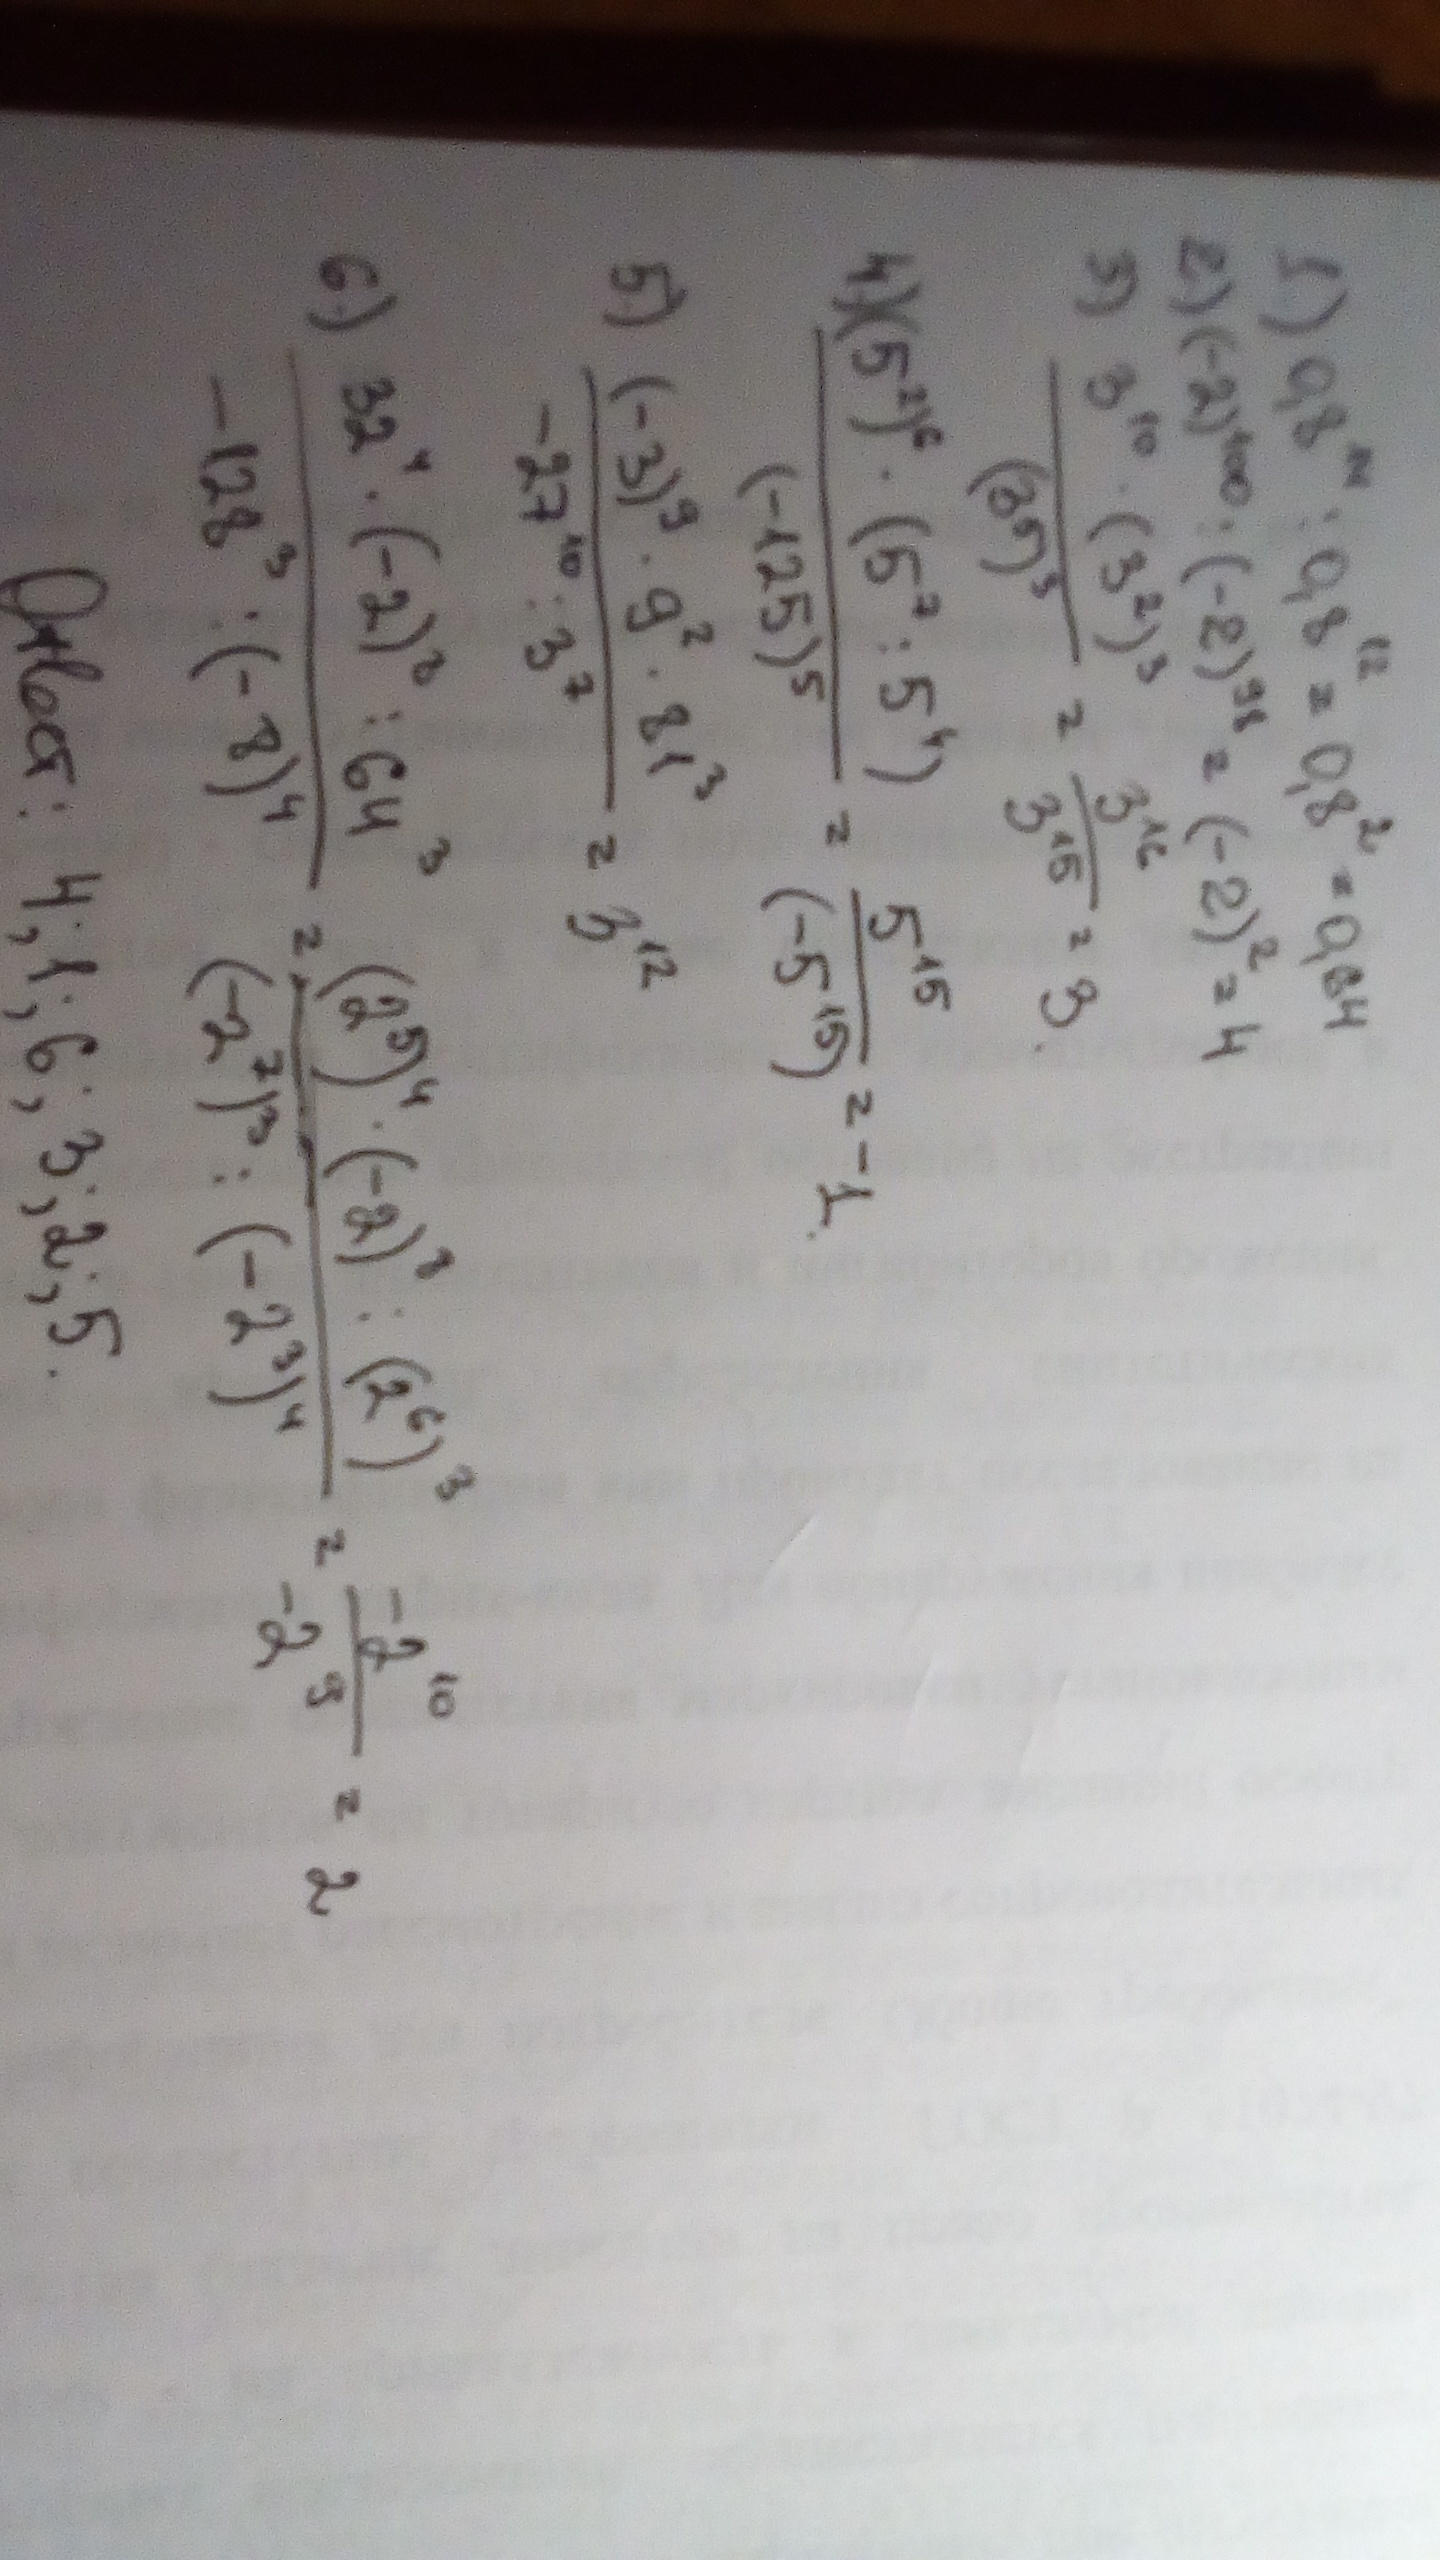 1.) 0,8¹⁴ : 0,8¹² = 0,8² = 0,64
2.) (-2)¹⁰⁰ : (-2)⁹⁸ = (-2)² = 4
3) 3¹⁰ · (3²)³ / (3⁵)³ = 3¹⁶ / 3¹⁵ = 3.
4.) (5²)⁶ · (5⁷ : 5⁴) / (-125)⁵ = 5¹⁵ / (-5¹⁵) = -1.
5.) (-3)⁹ · 9² · 81³ / -27¹⁰ : 3⁷ = 3¹²
6.) 32⁴ · (-2)⁸ : 64³ / -128³ : (-8)⁴ = (2⁵)⁴ · (-2)⁸ : (2⁶)³ / (-2⁷)³ : (-2³)⁴ = -2¹⁰ / -2⁹ = 2
Ответ: 4; 1; 6; 3; 2; 5.